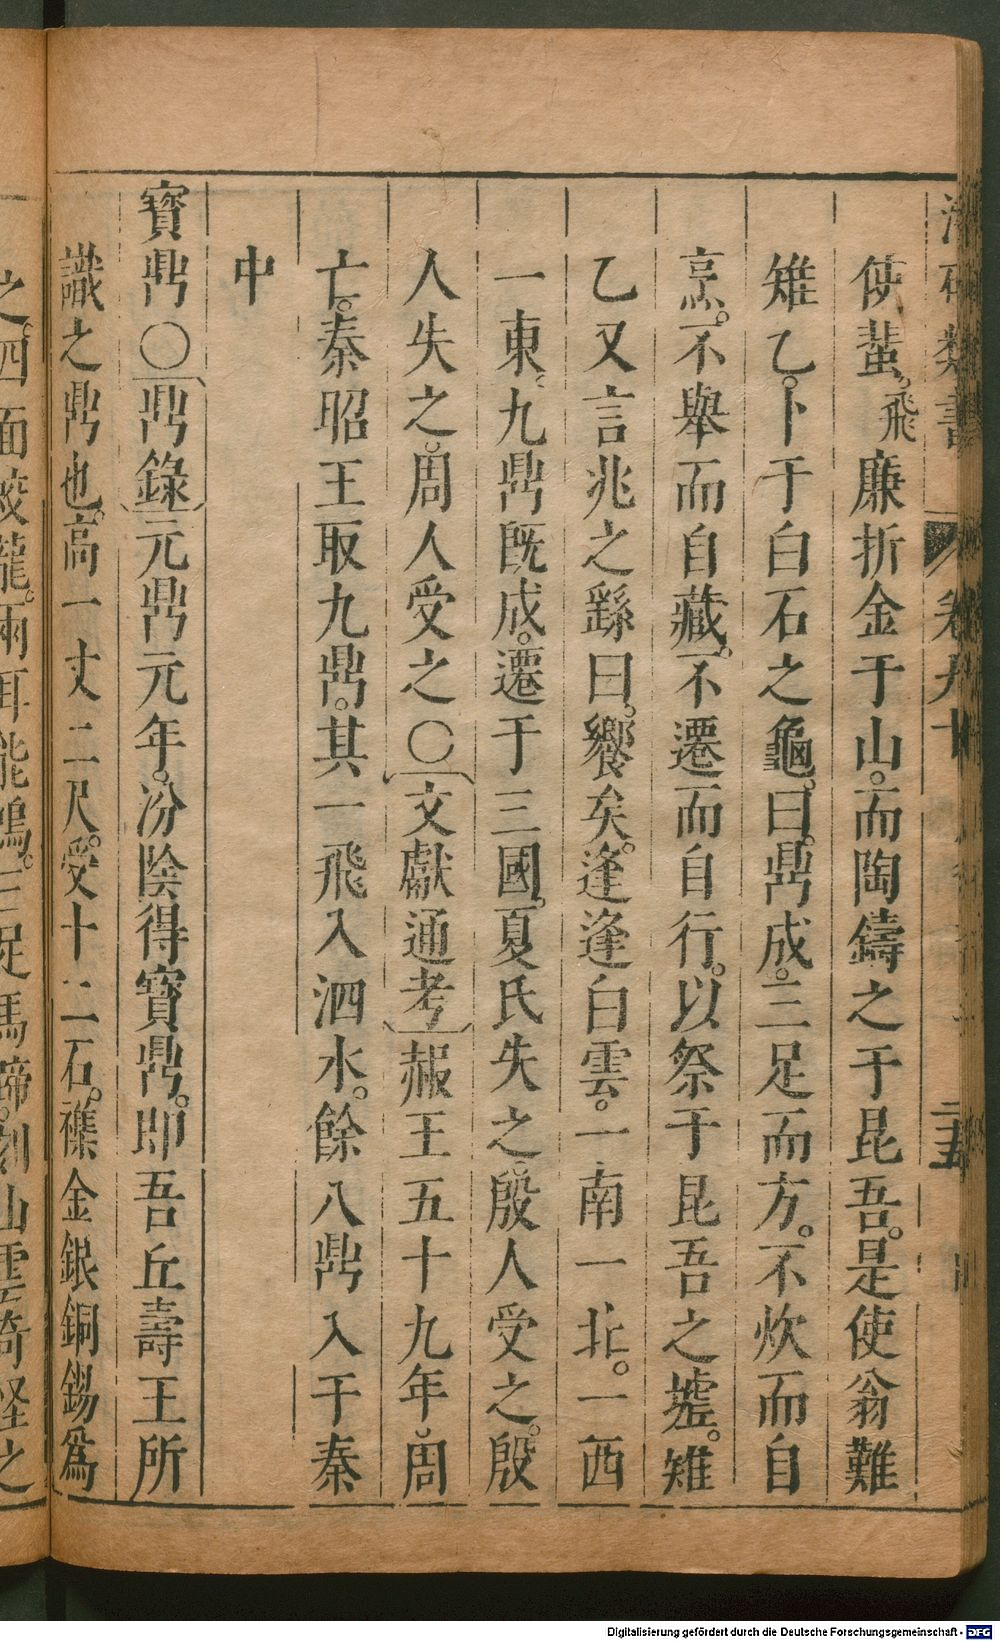 使蜚。飛廉折金于山。而陶鑄之于昆吾。是使翁難
雉乙。卜于白石之龜。曰。鼎成。三足而方。不炊而自
烹。不舉而自藏。不遷而自行。以祭于昆吾之墟。雉
乙又言兆之繇曰。饗矣。逢逢白雲。一南一北。一西
一東。九鼎既成。遷于三國。夏氏失之。殷人受之。殷
人失之。周人受之〇文獻通考赧王五十九年。周
亡。秦昭王取九鼎。其一飛入泗水。餘八鼎入于秦
中
寶鼎〇鼎錄元鼎元年。汾陰得寶鼎。即吾丘壽王所
識之鼎也。高一丈二尺。受十二石。襍金銀銅錫爲
之。四面蛟龍。兩耳能鳴。三足馬蹄。刻山雲奇怪之
Digitalisierung gefördert durch die Deutsche Forschungsgemeinschaft - DFG